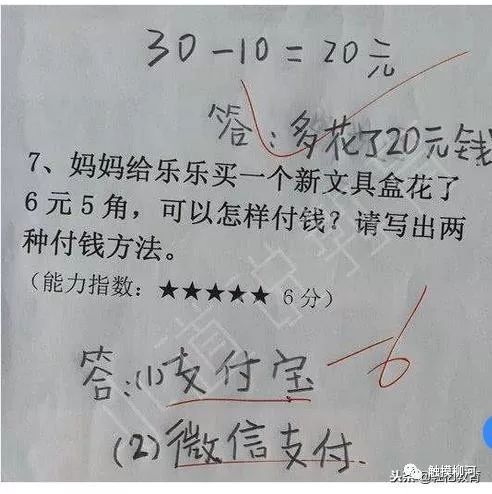 30-10=20元
答:多花了20元钱
7、妈妈给乐乐买一个新文具盒花了
6元5角，可以怎样付钱？请写出两
种付钱方法。
(能力指数：★★★★★ 6分)
答:(1)支付宝 -6
(2)微信支付.
触摸柳河